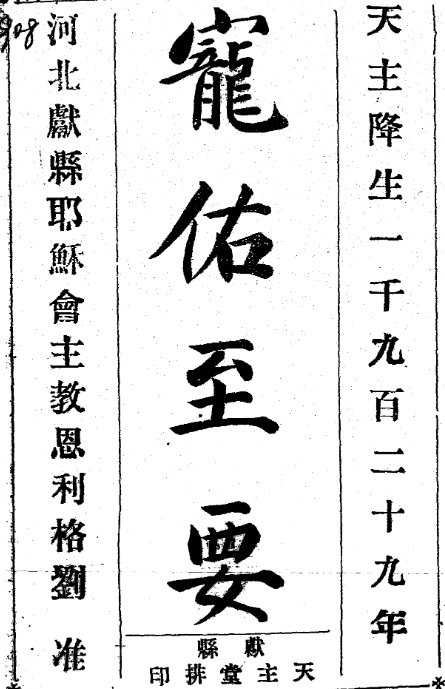 天主降生一千九百二十九年
寵佑至要
獻縣
天主堂排印
河北獻縣耶穌會主教恩利格劉 准
908